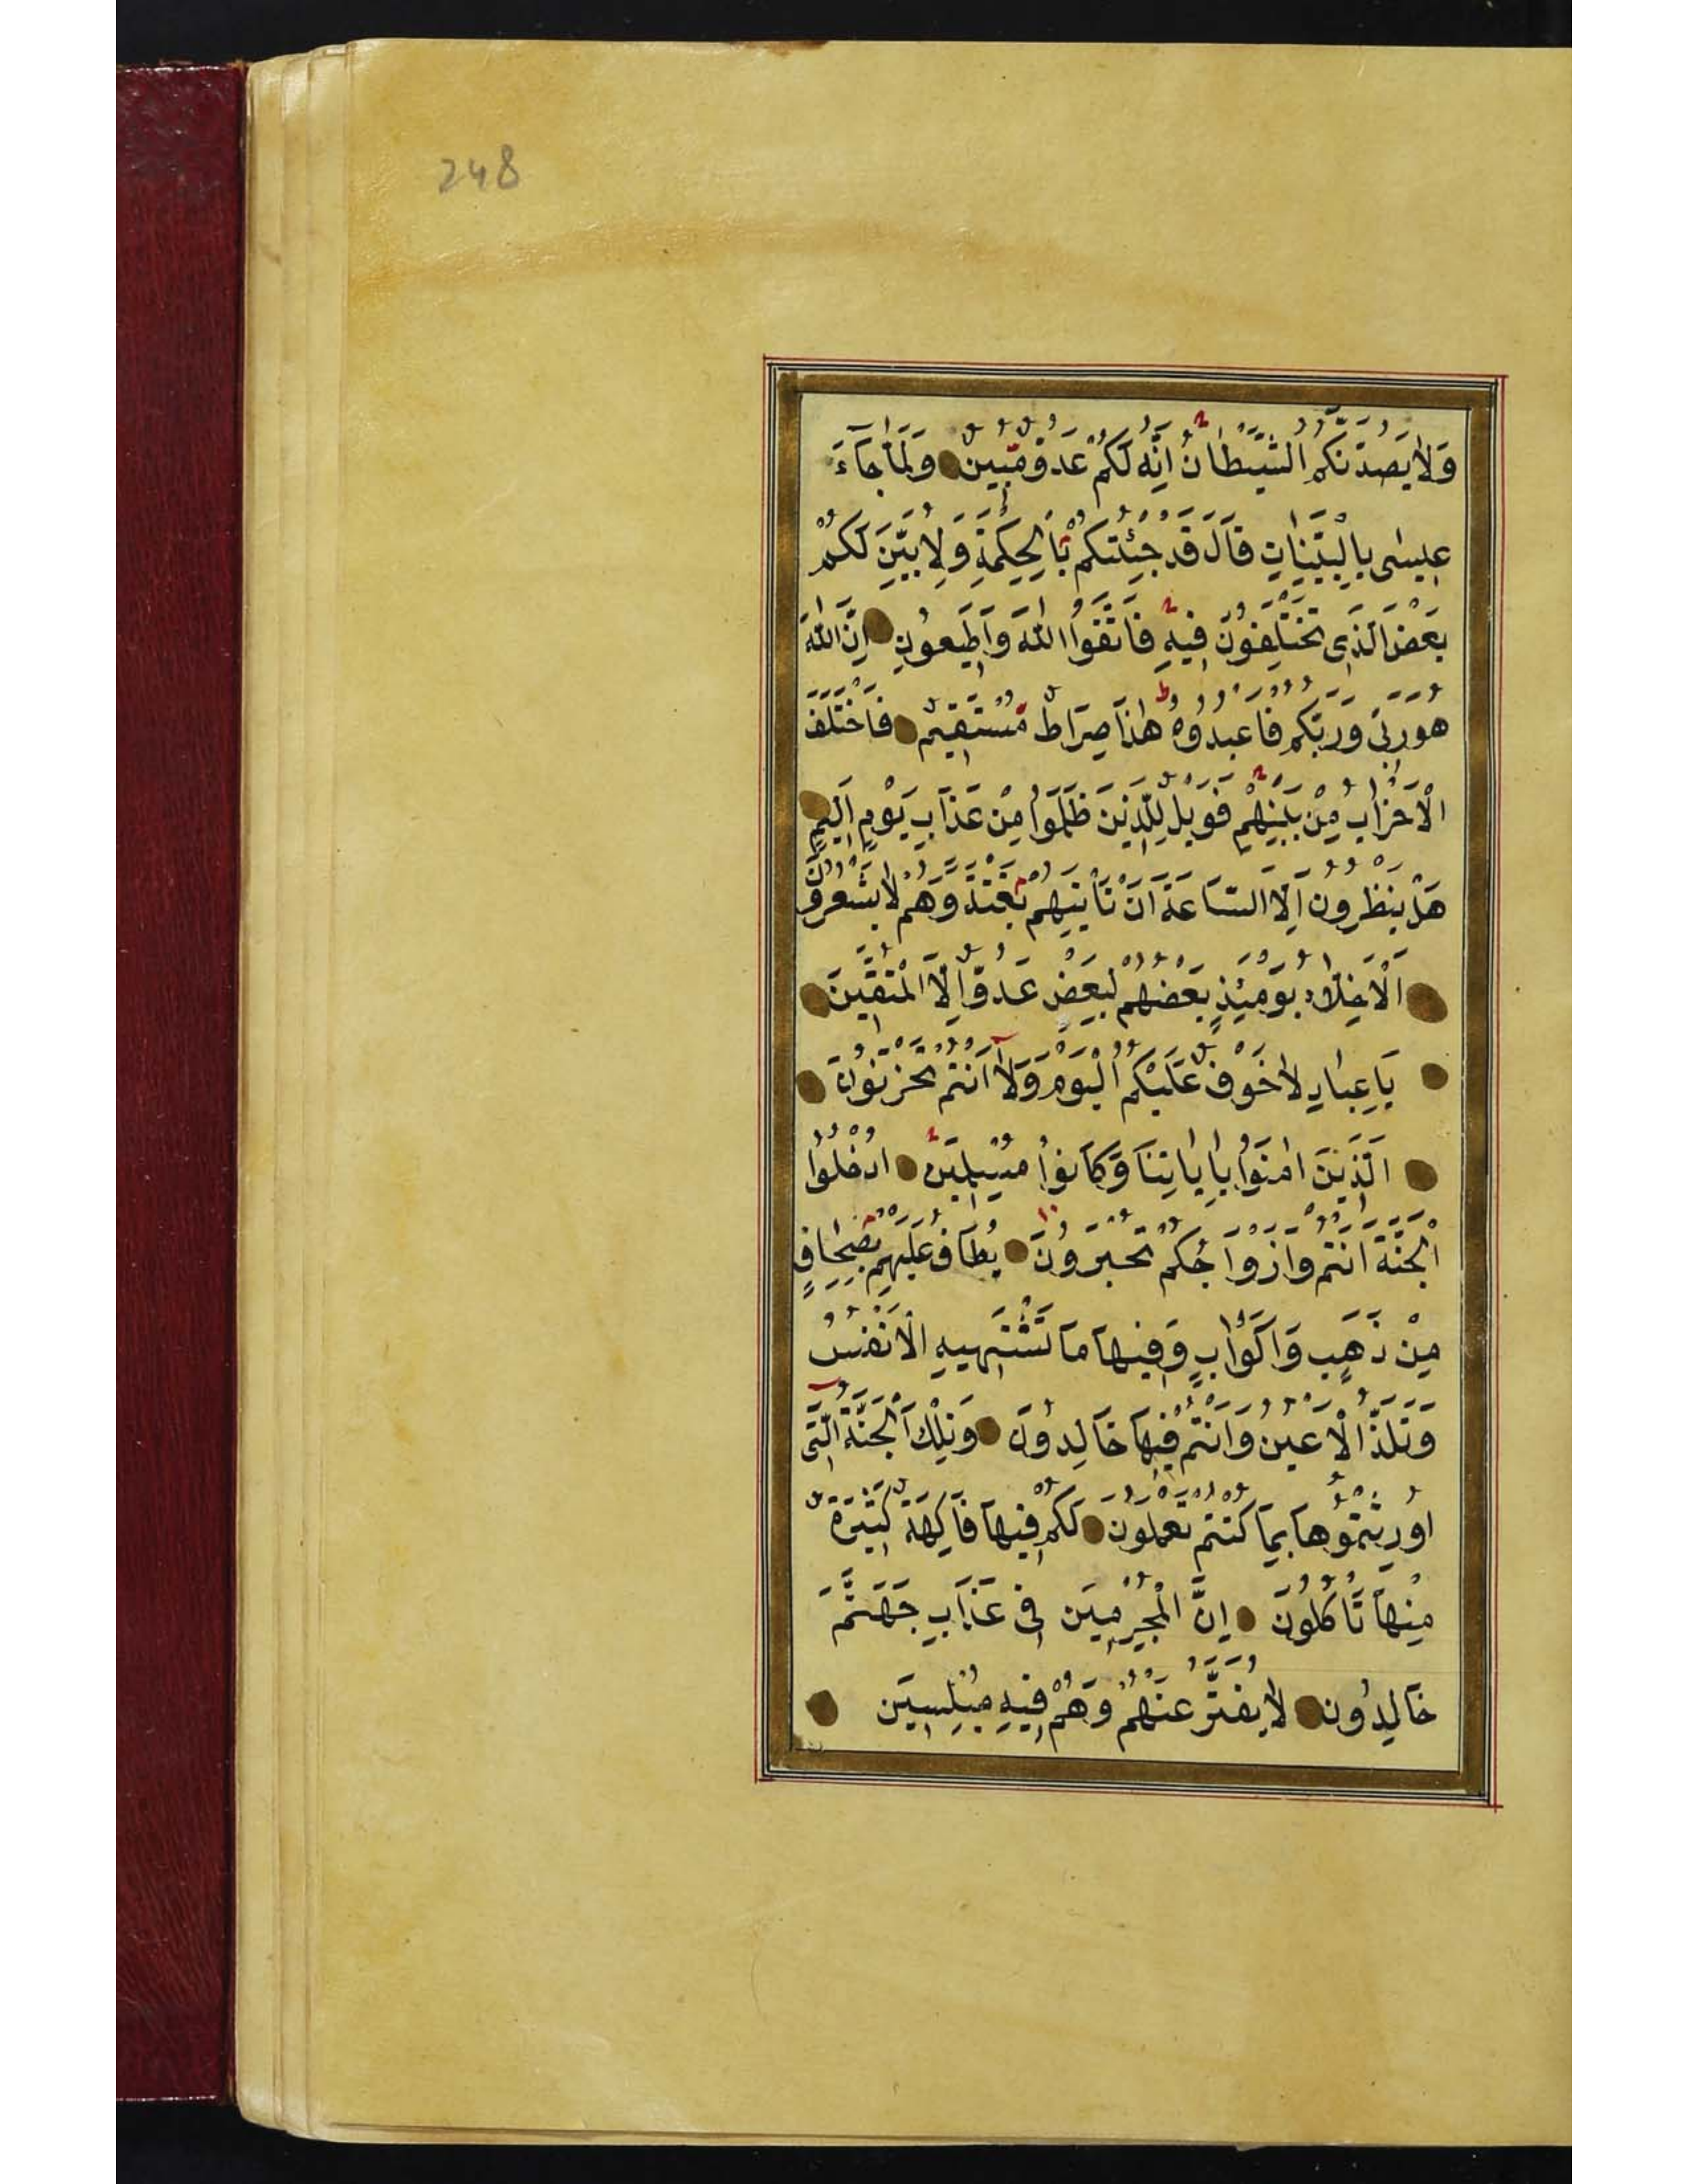 248
وَلَا يَصُدَّنَّكُمُ الشَّيْطَانُ اِنَّهُ لَكُمْ عَدُوٌّ مُبِينٌ وَلَمَّا جَاءَ
عِيسٰى بِالْبَيِّنَاتِ قَالَ قَدْ جِئْتُكُمْ بِالْحِكْمَةِ وَلِاُبَيِّنَ لَكُمْ
بَعْضَ الَّذِى تَخْتَلِفُونَ فِيهِ فَاتَّقُوا اللّٰهَ وَاَطِيعُونِ اِنَّ اللّٰهَ
هُوَ رَبِّى وَرَبُّكُمْ فَاعْبُدُوهُ هٰذَا صِرَاطٌ مُسْتَقِيمٌ فَاخْتَلَفَ
الْاَحْزَابُ مِنْ بَيْنِهِمْ فَوَيْلٌ لِلَّذِينَ ظَلَمُوا مِنْ عَذَابِ يَوْمٍ اَلِيمٍ
هَلْ يَنْظُرُونَ اِلَّا السَّاعَةَ اَنْ تَاْتِيَهُمْ بَغْتَةً وَهُمْ لَا يَشْعُرُونَ
اَلْاَخِلَّاءُ يَوْمَئِذٍ بَعْضُهُمْ لِبَعْضٍ عَدُوٌّ اِلَّا الْمُتَّقِينَ
يَا عِبَادِ لَا خَوْفٌ عَلَيْكُمُ الْيَوْمَ وَلَا اَنْتُمْ تَحْزَنُونَ
اَلَّذِينَ اٰمَنُوا بِاٰيَاتِنَا وَكَانُوا مُسْلِمِينَ ادْخُلُوا
الْجَنَّةَ اَنْتُمْ وَاَزْوَاجُكُمْ تُحْبَرُونَ يُطَافُ عَلَيْهِمْ بِصِحَافٍ
مِنْ ذَهَبٍ وَاَكْوَابٍ وَفِيهَا مَا تَشْتَهِيهِ الْاَنْفُسُ
وَتَلَذُّ الْاَعْيُنُ وَاَنْتُمْ فِيهَا خَالِدُونَ وَتِلْكَ الْجَنَّةُ الَّتِى
اُورِثْتُمُوهَا بِمَا كُنْتُمْ تَعْمَلُونَ لَكُمْ فِيهَا فَاكِهَةٌ كَثِيرَةٌ
مِنْهَا تَاْكُلُونَ اِنَّ الْمُجْرِمِينَ فِى عَذَابِ جَهَنَّمَ
خَالِدُونَ لَا يُفَتَّرُ عَنْهُمْ وَهُمْ فِيهِ مُبْلِسِينَ